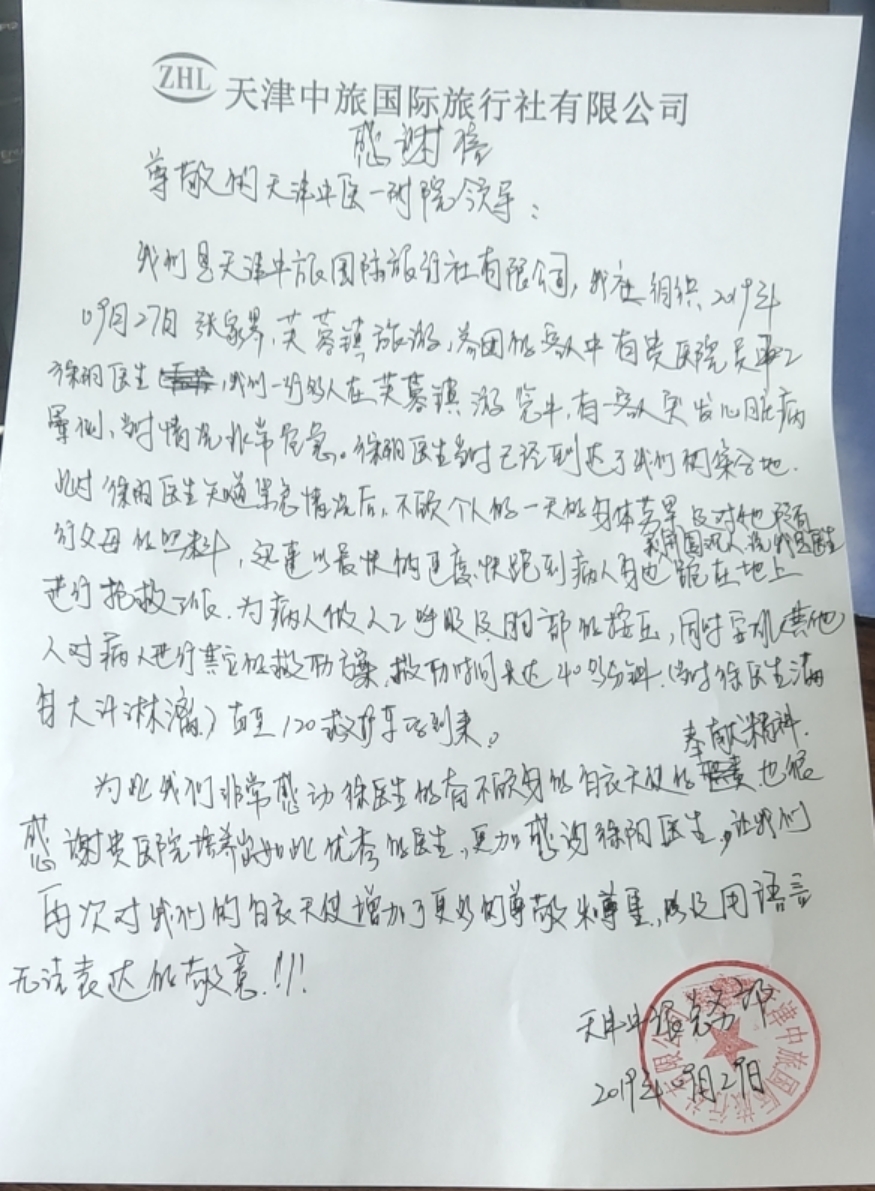 ZHL 天津中旅国际旅行社有限公司
感谢信
尊敬的天津中医一附院领导：
我们是天津中旅国际旅行社有限公司，我社组织2019年
09月27日张家界、芙蓉镇旅游，参团的客人中有贵医院员工
徐阳医生，我们一行人在芙蓉镇游览中，有一客人突发心脏病
晕倒，当时情况非常危急。徐阳医生当时已经到达了我们的集合地.
此时徐阳医生知道紧急情况后，不顾个人的一天的身体劳累及对他
父母的照料，以最快的速度快跑到病人身边跪在地上
说我是医生
进行抢救，为病人做人工呼吸及胸部的按压，同时安排其他
人对病人进行其它的救助方案，救助时间长达40多分钟.（当时徐医生满
身大汗淋漓）直至120救护车的到来。
为此我们非常感动徐医生的奋不顾身的白衣天使的奉献精神.也很
感谢贵医院培养出如此优秀的医生，更加感谢徐阳医生，让我们
再次对我们的白衣天使增加了更多的尊敬和尊重，以及用语言
无法表达的敬意!!!
天津中旅
2019年09月29日